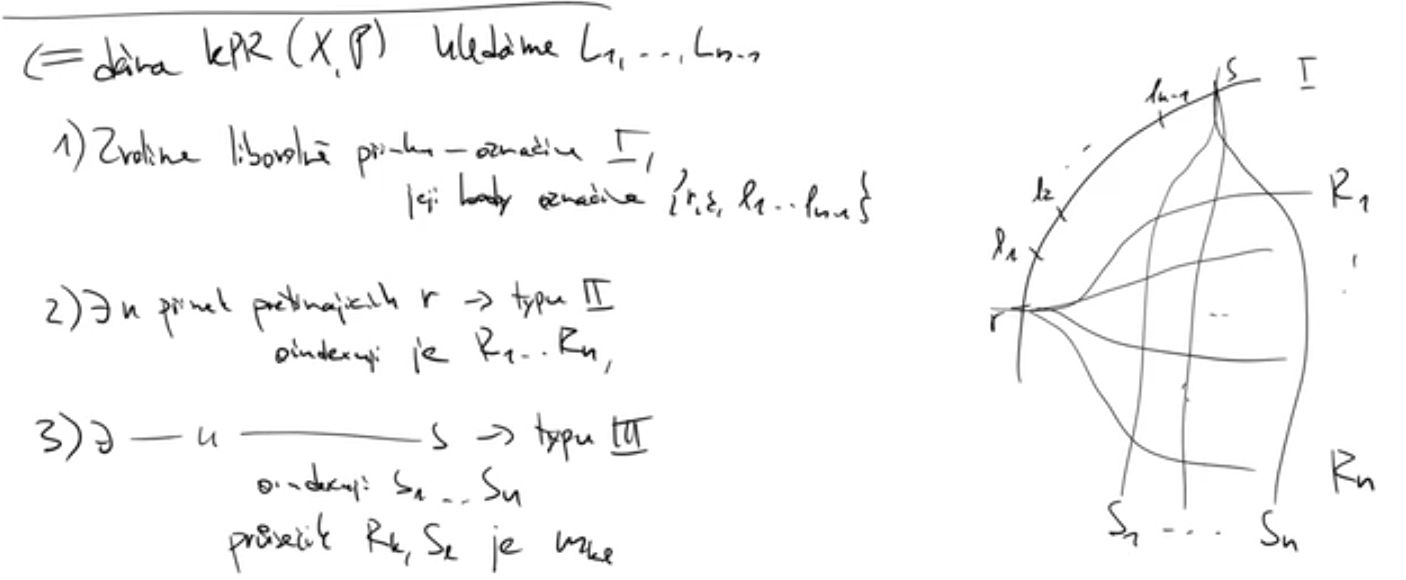 <= dána KPR (X,P) hledáme L1, ..., Ln-1
1) Zvolíme libovolně přímku – označíme I,
její body označíme {r, s, l1 ... ln-1}
2) ∃ n přímek protínajících r -> typu II
oindexuji je R1 ... Rn,
3) ∃ — n ——— s -> typu III
oindexuji S1 ... Sn
průsečík Rk, Sl je mkl
s I
ln-1
l2
R1
l1
r
Rn
S1 .... Sn